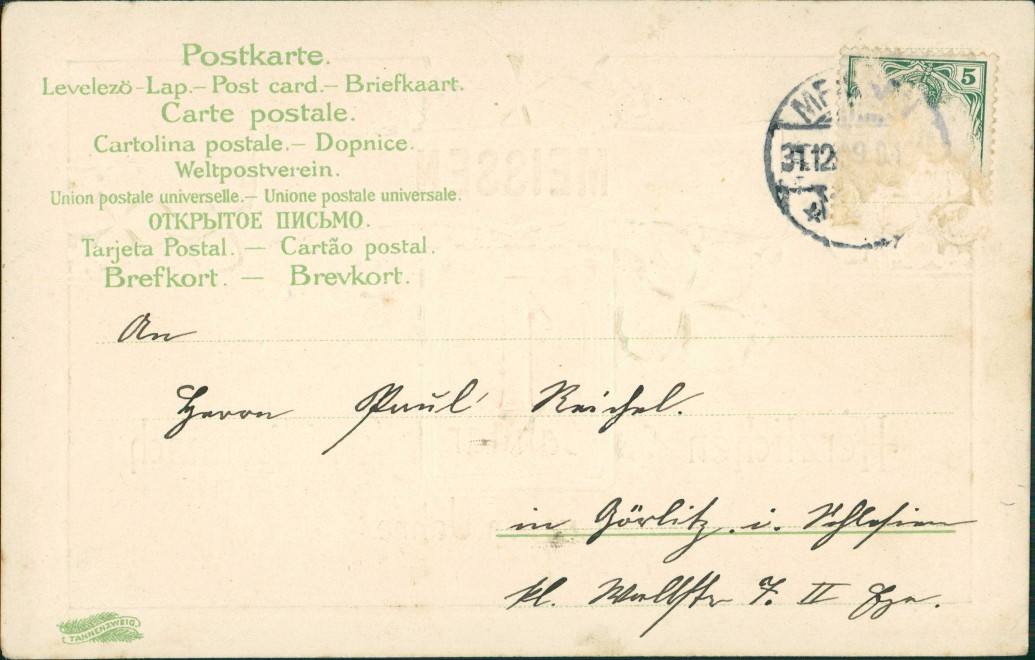 Postkarte.
Levelező-Lap.– Post card.– Briefkaart.
Carte postale.
Cartolina postale.– Dopnice.
Weltpostverein.
Union postale universelle.– Unione postale universale.
ОТКРЫТОЕ ПИСЬМО.
Tarjeta Postal. — Cartão postal.
Brefkort. — Brevkort.
5
31.12
An
Herrn Paul Reichel.
in Görlitz. i. Schlesien
kl. Wallstr 7. II
TANNENZWEIG.